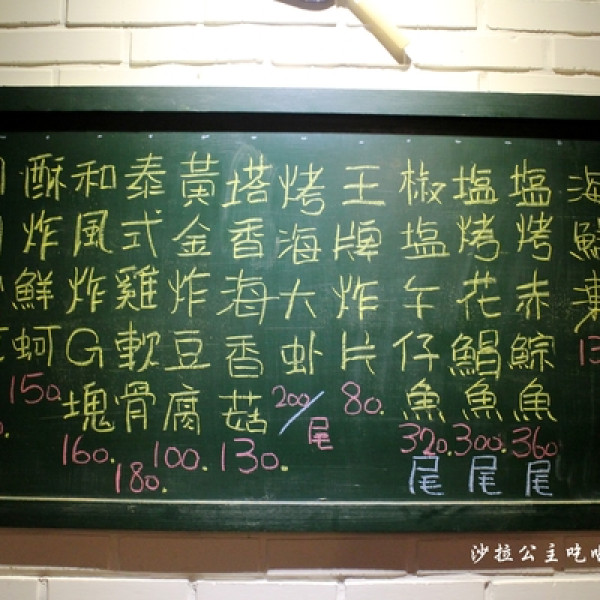 塩烤赤鯮魚 360. 尾
塩烤花鯧魚 300. 尾
椒塩午仔魚 320. 尾
王牌炸片 80.
烤海大虾 200/尾
塔香海香菇 130.
黃金炸豆腐 100.
泰式雞軟骨 180.
和風炸G塊 160.
酥炸鮮蚵 150.
沙拉公主吃